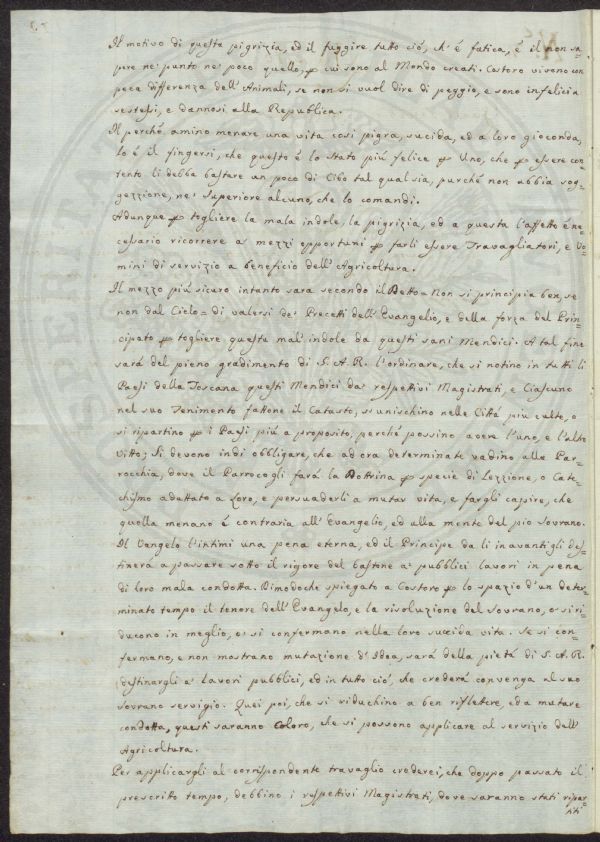 Il motivo di questa pigrizia, ed il fuggire tutto ciò, ch' é fatica, é il non sa-
pere ne' punto ne' poco quello, p cui sono al Mondo creati. Costoro vivono con
poca differenza dell' Animali, se non si vuol dire di peggio, e sono infelici a
se stessi, e dannosi alla Republica.
Il perché amino menare una vita così pigra, sucida, ed a loro gioconda,
lo é il fingersi, che questo é lo stato più felice p Uno, che p essere con-
tento li debba bastare un poco di Cibo tal qual sia, purché non abbia sog-
gezzione, ne' superiore alcuno, che lo comandi.
Adunque p togliere la mala indole, la pigrizia, ed a questa l'affetto é ne-
cessario ricorrere a' mezzi opportuni p farli essere Travagliatori, e Vo-
mini di servizio a beneficio dell' Agricoltura.
Il mezzo più sicuro intanto sara secondo il Detto = Non si principia ben, se
non dal Cielo = di valersi de' Precetti dell' Evangelio, e della forza del Prin-
cipato p togliere questa mal' indole da questi sani Mendici. A tal fine
sará del pieno gradimento di S. A. R. l'ordinare, che si notino in tutti li
Paesi della Toscana questi Mendici da' respettivi Magistrati, e Ciascuno
nel suo Tenimento fattone il Catasto, si unischino nelle Città più culte, o
si ripartino p i Paesi più a proposito, perché possino avere l'uno, e l'altro
vitto; Si devono indi obbligare, che ad ora determinate vadino alle Par-
rocchia, dove il Parroco gli fará la Dottrina p specie di Lezzione, o Cate-
chismo adattato a Loro, e persuaderli a mutar vita, e fargli capire, che
quella menano é contraria all' Evangelio, ed alla mente del pio Sovrano.
Il Vangelo l'intimi una pena eterna, ed il Principe da li inavanti gli des-
tinerá a passare sotto il rigore del bastone a' pubblici lavori in pena
di loro mala condotta. Dimodoche spiegato a Costoro p lo spazio d'un deter-
minato tempo il tenore dell' Evangelo, e la risoluzione del Sovrano, o si ri-
ducono in meglio, o si confermano nella loro sucida vita. Se si con-
fermano, e non mostrano mutazione d' Idea, sará della pietá di S. A. R.
destinargli a' Lavori pubblici, ed in tutto ciò, che crederá convenga al suo
sovrano servigio. Quei poi, che si riduchino a ben riflettere, ed a mutare
condotta, questi saranno Coloro, che si possono applicare al servizio dell'
Agricoltura.
Per applicargli al corrispondente travaglio crederei, che doppo passato il
prescritto tempo, debbino i respettivi Magistrati, dove saranno stati ripar-
titi